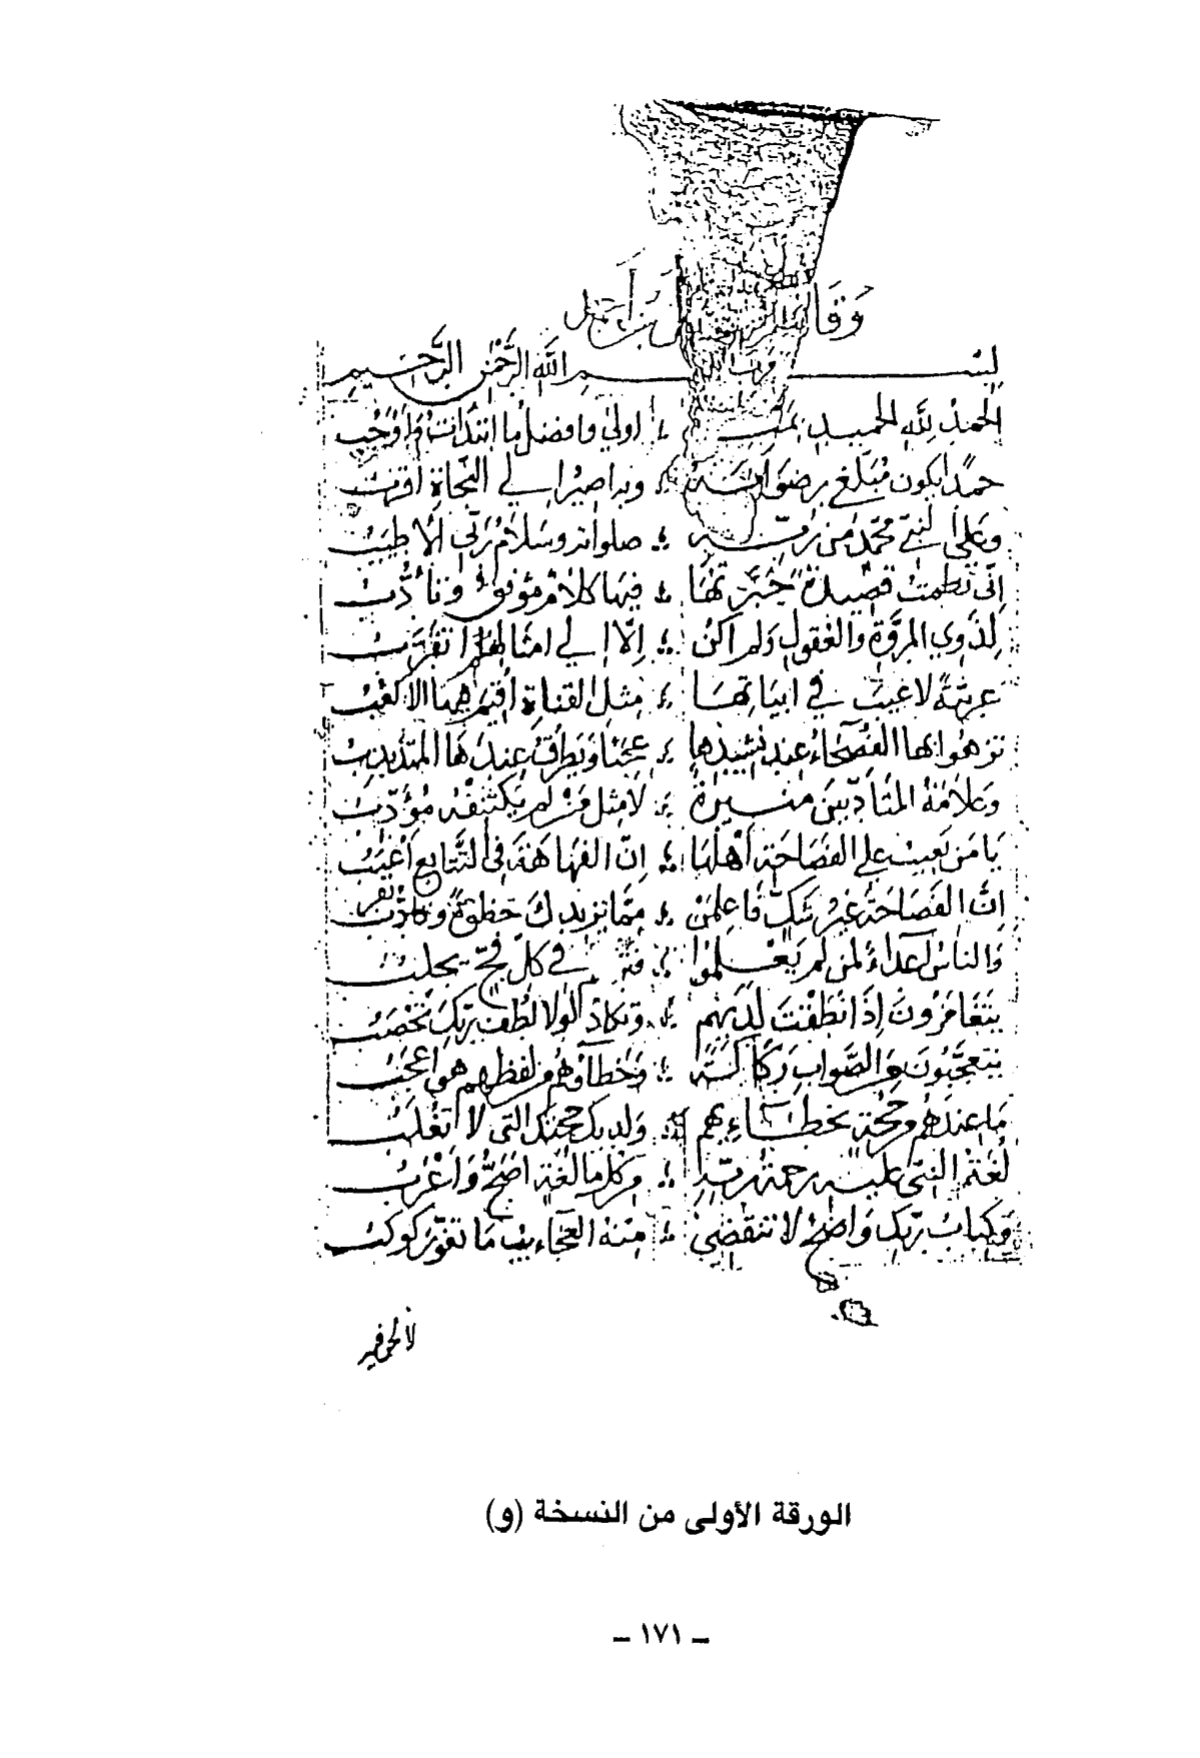 بسم الله الرحمن الرحيم
الحمد لله الحميد بمنه أولى وأفضل ما ابتدأت وأوجب
حمدا يكون مبلغي رضوانه وبه أصير إلى النجاة أقرب
وعلى النبي محمد من ربه صلواته وسلام ربي الأطيب
إني نظمت قصيدة حبرتها فيها كلام مونق وتأدب
لذوي المروة والعقول ولم أكن إلا إلى أمثالهم أتقرب
عربية لا عيب في أبياتها مثل القناة أقيم فيها الأكعب
تزهو بها الفصحاء عند نشيدها عجبا ويطرق عندها المتذبذب
وعلامة المتأدبين منيرة لا مثل من لم يكتنفه مؤدب
يا من يعيب على الفصاحة أهلها إن الفهاهة في التتابع أعيب
إن الفصاحة غير شك فاعلمن مما يزيدك حظوة ويقرب
والناس أعداء لمن لم يعلموا في كل فج يجلب
يتغامزون إذا نطقت لديهم وتكاد لولا لطف ربك تحصب
يتعجبون من الصواب ركاكة وخطاؤهم من لفظهم هو أعجب
ما عندهم من حجة بخطاءهم ولديك حجتك التي لا تغلب
لغة النبي عليه رحمة ربه من كل ما لغة أصح وأعرب
وكتاب ربك واضح لا تنقضي منه العجائب ما تغور كوكب
لا لحن فيه
الورقة الأولى من النسخة (و)
– ١٧١ –